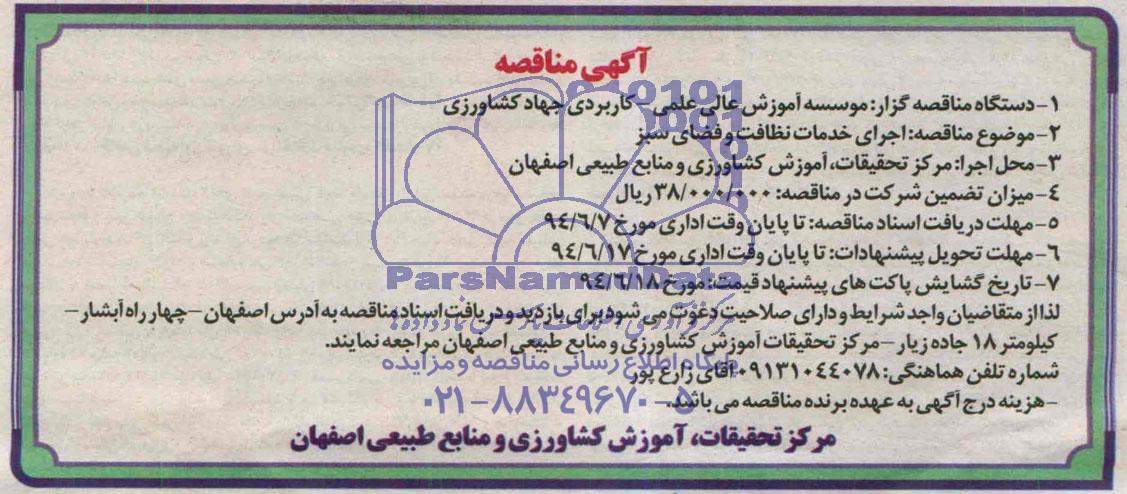 آگهی مناقصه
۱- دستگاه مناقصه گزار: موسسه آموزش عالی علمی - کاربردی جهاد کشاورزی
۲- موضوع مناقصه: اجرای خدمات نظافت و فضای سبز
۳- محل اجرا: مرکز تحقیقات، آموزش کشاورزی و منابع طبیعی اصفهان
٤- میزان تضمین شرکت در مناقصه: ۳۸/۰۰۰/۰۰۰ ریال
۵- مهلت دریافت اسناد مناقصه: تا پایان وقت اداری مورخ ۹٤/٦/۷
٦- مهلت تحویل پیشنهادات: تا پایان وقت اداری مورخ ۹٤/٦/۱۷
۷- تاریخ گشایش پاکت های پیشنهاد قیمت: مورخ ۹٤/٦/۱۸
لذا از متقاضیان واجد شرایط و دارای صلاحیت دعوت می شود برای بازدید و دریافت اسناد مناقصه به آدرس اصفهان - چهار راه آبشار -
کیلومتر ۱۸ جاده زیار - مرکز تحقیقات آموزش کشاورزی و منابع طبیعی اصفهان مراجعه نمایند.
شماره تلفن هماهنگی: ۰۹۱۳۱۰٤٤۰۷۸ آقای زارع پور
- هزینه درج آگهی به عهده برنده مناقصه می باشد.
مرکز تحقیقات، آموزش کشاورزی و منابع طبیعی اصفهان
ParsNamadData
پایگاه اطلاع رسانی مناقصه و مزایده
۰۲۱-۸۸۳۴۹۶۷۰-۵